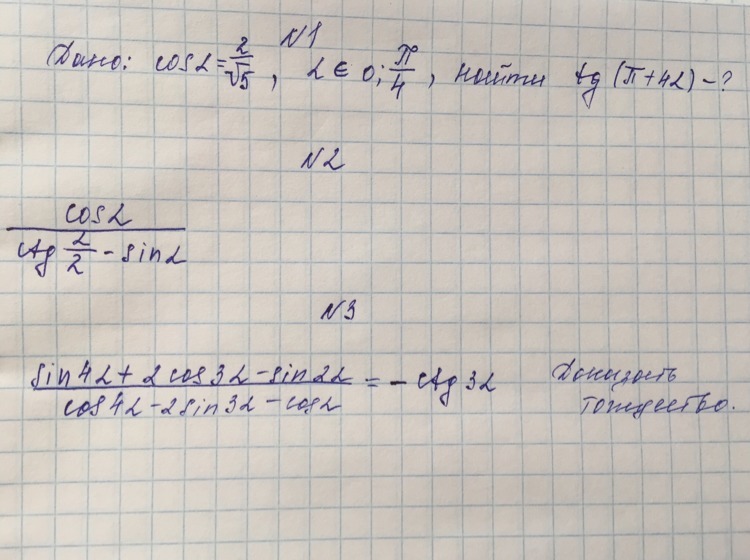 N1
Дано: cos α = 2/√5, α ∈ 0; π/4, найти tg (π + 4α) - ?
N2
cos α / (ctg α/2 - sin α)
N3
(sin 4α + 2 cos 3α - sin 2α) / (cos 4α - 2 sin 3α - cos α) = - ctg 3α Доказать
тождество.